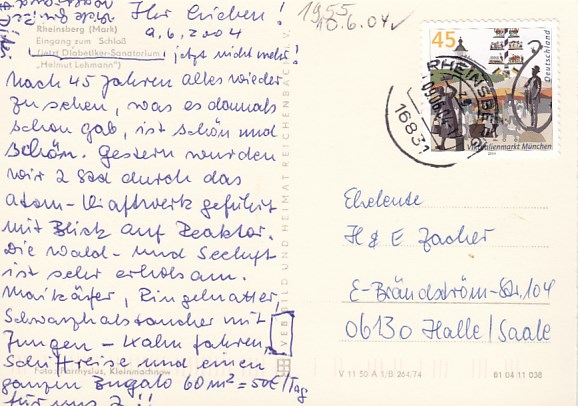 Ihr Lieben!
9.6.2004
Rheinsberg (Mark)
Eingang zum Schloß
(jetzt Diabetiker-Sanatorium
„Helmut Lehmann")
jetzt nicht mehr!
Nach 45 Jahren alles wieder
zu sehen, was es damals
schon gab, ist schön und
schön. Gestern wurden
wir 2 Std durch das
Atom-Kraftwerk geführt
mit Blick auf Reaktor.
Die Wald- und Seeluft
ist sehr erholsam.
Maikäfer, Ringelnatter,
Schwarzhalstaucher mit
Jungen - Kahn fahren,
Schiffreise und einen
Foto: Darthysius, Kleinmachnow
ganzen Bugalo 60m² = 50€/Tag
für uns 2!!
VEB BILD UND HEIMAT REICHENBACH I. V.
1955
10.6.04
45
Deutschland
Viktualienmarkt München
RHEINSBERG
16831
Eheleute
H & E Zacher
E-Brändström-Str. 104
06130 Halle/Saale
V 11 50 A 1/B 264/74
01 04 11 038